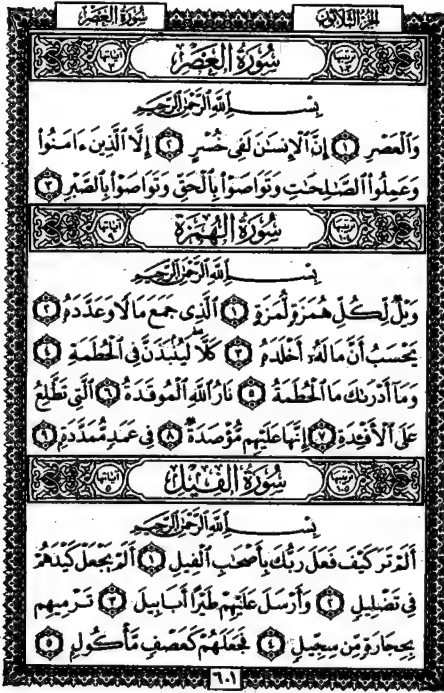 سُورَةُ العَصْرِ الجُزْءُ الثَّلَاثُونَ
سُورَةُ العَصْرِ
بِسْمِ اللَّهِ الرَّحْمَٰنِ الرَّحِيمِ
وَالْعَصْرِ ١ إِنَّ الْإِنسَٰنَ لَفِى خُسْرٍ ٢ إِلَّا الَّذِينَ ءَامَنُوا
وَعَمِلُوا الصَّٰلِحَٰتِ وَتَوَاصَوْا بِالْحَقِّ وَتَوَاصَوْا بِالصَّبْرِ ٣
سُورَةُ الهُمَزَةِ
بِسْمِ اللَّهِ الرَّحْمَٰنِ الرَّحِيمِ
وَيْلٌ لِّكُلِّ هُمَزَةٍ لُّمَزَةٍ ١ الَّذِى جَمَعَ مَالًا وَعَدَّدَهُ ٢
يَحْسَبُ أَنَّ مَالَهُ أَخْلَدَهُ ٣ كَلَّا لَيُنۢبَذَنَّ فِى الْحُطَمَةِ ٤
وَمَا أَدْرَىٰكَ مَا الْحُطَمَةُ ٥ نَارُ اللَّهِ الْمُوقَدَةُ ٦ الَّتِى تَطَّلِعُ
عَلَى الْأَفْـِٔدَةِ ٧ إِنَّهَا عَلَيْهِم مُّؤْصَدَةٌ ٨ فِى عَمَدٍ مُّمَدَّدَةٍ ٩
سُورَةُ الفِيلِ
بِسْمِ اللَّهِ الرَّحْمَٰنِ الرَّحِيمِ
أَلَمْ تَرَ كَيْفَ فَعَلَ رَبُّكَ بِأَصْحَٰبِ الْفِيلِ ١ أَلَمْ يَجْعَلْ كَيْدَهُمْ
فِى تَضْلِيلٍ ٢ وَأَرْسَلَ عَلَيْهِمْ طَيْرًا أَبَابِيلَ ٣ تَرْمِيهِم
بِحِجَارَةٍ مِّن سِجِّيلٍ ٤ فَجَعَلَهُمْ كَعَصْفٍ مَّأْكُولٍۭ ٥
٦٠١